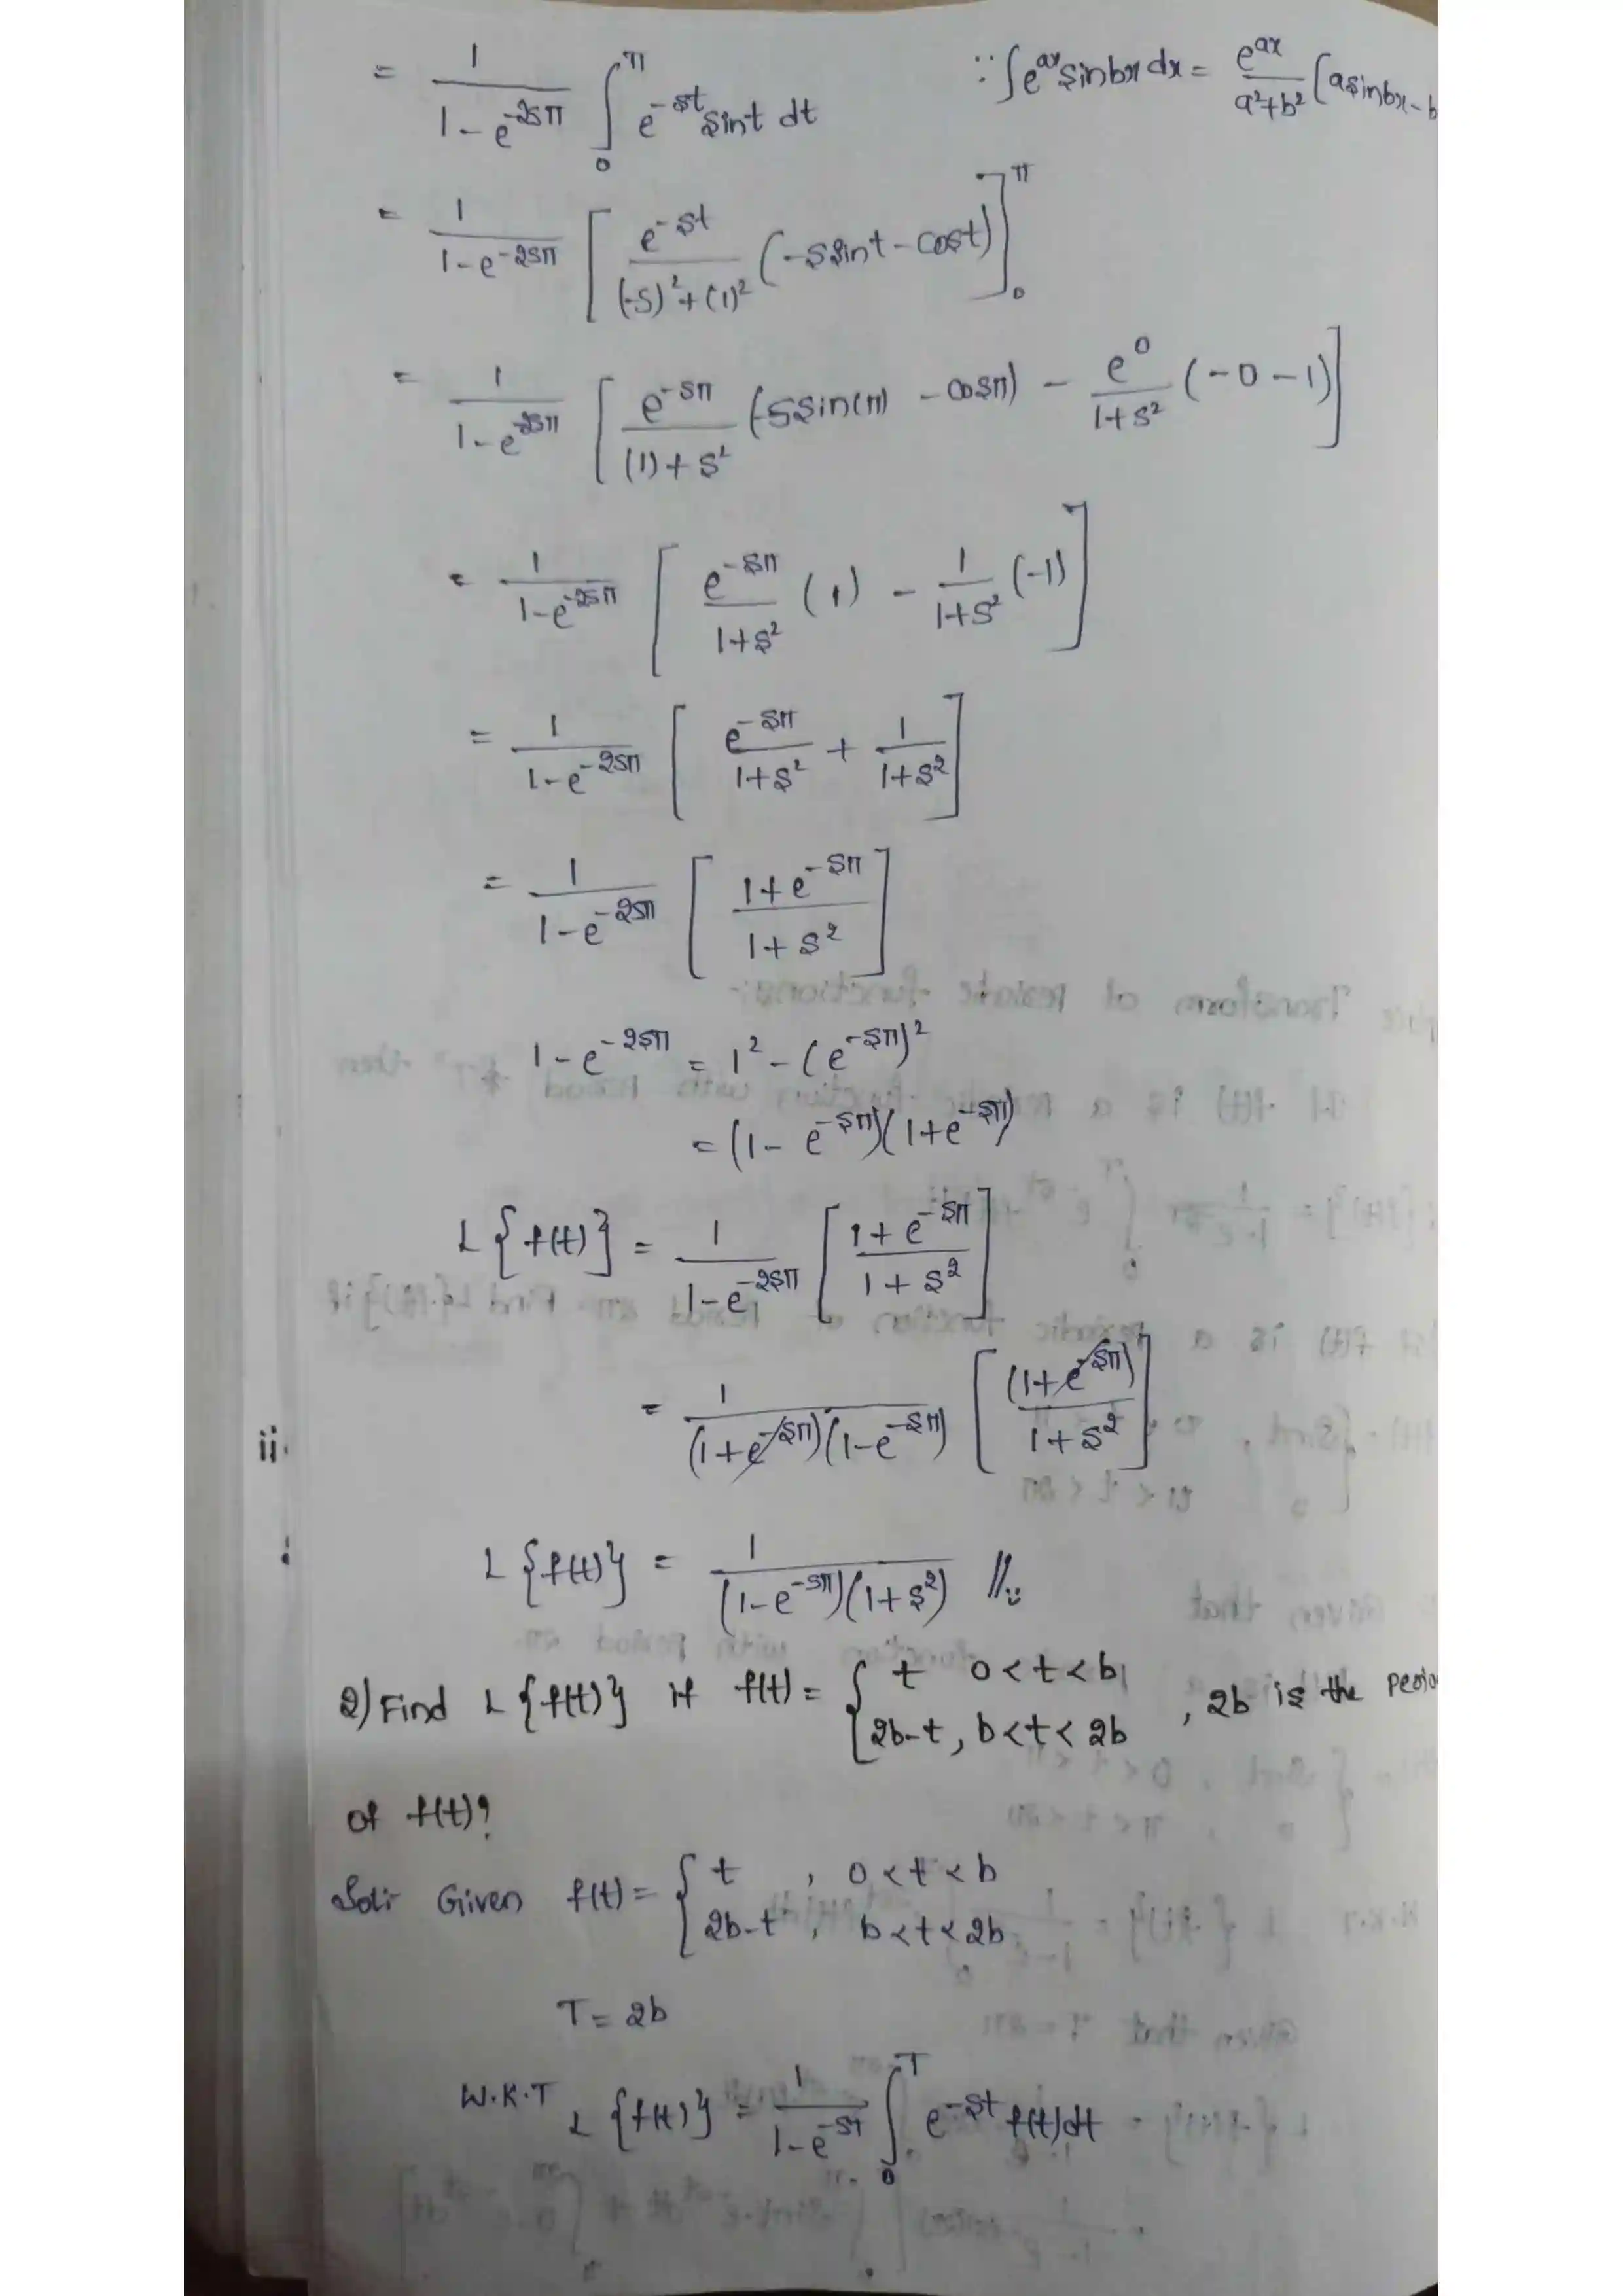 = 1/(1-e^-2sπ) ∫_0^π e^-st sint dt ∵ ∫e^ax sinbx dx = e^ax/(a²+b²) (asinbx - b
= 1/(1-e^-2sπ) [ e^-st/((-s)²+(1)²) (-ssint-cost) ]_0^π
= 1/(1-e^-2sπ) [ e^-sπ/((1)+s²) (-ssin(π) - cosπ) - e^0/(1+s²) (-0-1) ]
= 1/(1-e^-2sπ) [ e^-sπ/(1+s²) (1) - 1/(1+s²) (-1) ]
= 1/(1-e^-2sπ) [ e^-sπ/(1+s²) + 1/(1+s²) ]
= 1/(1-e^-2sπ) [ (1+e^-sπ)/(1+s²) ]
1-e^-2sπ = 1² - (e^-sπ)²
= (1-e^-sπ)(1+e^-sπ)
L{f(t)} = 1/(1-e^-2sπ) [ (1+e^-sπ)/(1+s²) ]
= 1/((1+e^-sπ)(1-e^-sπ)) [ (1+e^-sπ)/(1+s²) ]
L{f(t)} = 1/((1-e^-sπ)(1+s²)) //.
2) Find L{f(t)} if f(t) = { t 0<t<b, 2b-t, b<t<2b , 2b is the perio
of f(t)?
Sol:- Given f(t) = { t , 0<t<b
2b-t , b<t<2b
T = 2b
W.K.T L{f(t)} = 1/(1-e^-sT) ∫_0^T e^-st f(t)dt